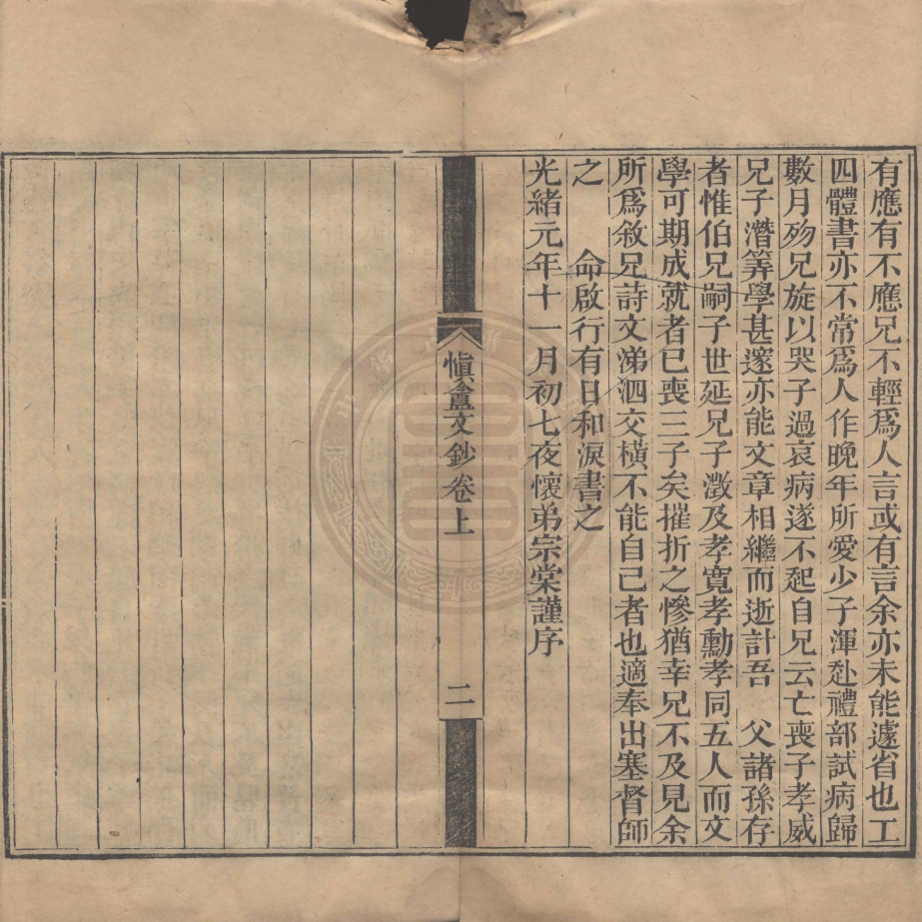 有應有不應兄不輕爲人言或有言余亦未能遽省也工
四體書亦不常爲人作晚年所愛少子渾赴禮部試病歸
數月歿兄旋以哭子過哀病遂不起自兄云亡喪子孝威
兄子潛等學甚邃亦能文章相繼而逝計吾　父諸孫存
者惟伯兄嗣子世延兄子澂及孝寬孝勳孝同五人而文
學可期成就者已喪三子矣摧折之慘猶幸兄不及見余
所爲敘兄詩文涕泗交橫不能自已者也適奉出塞督師
之　命啟行有日和淚書之
光緒元年十一月初七夜懷弟宗棠謹序
愼盦文鈔卷上　二